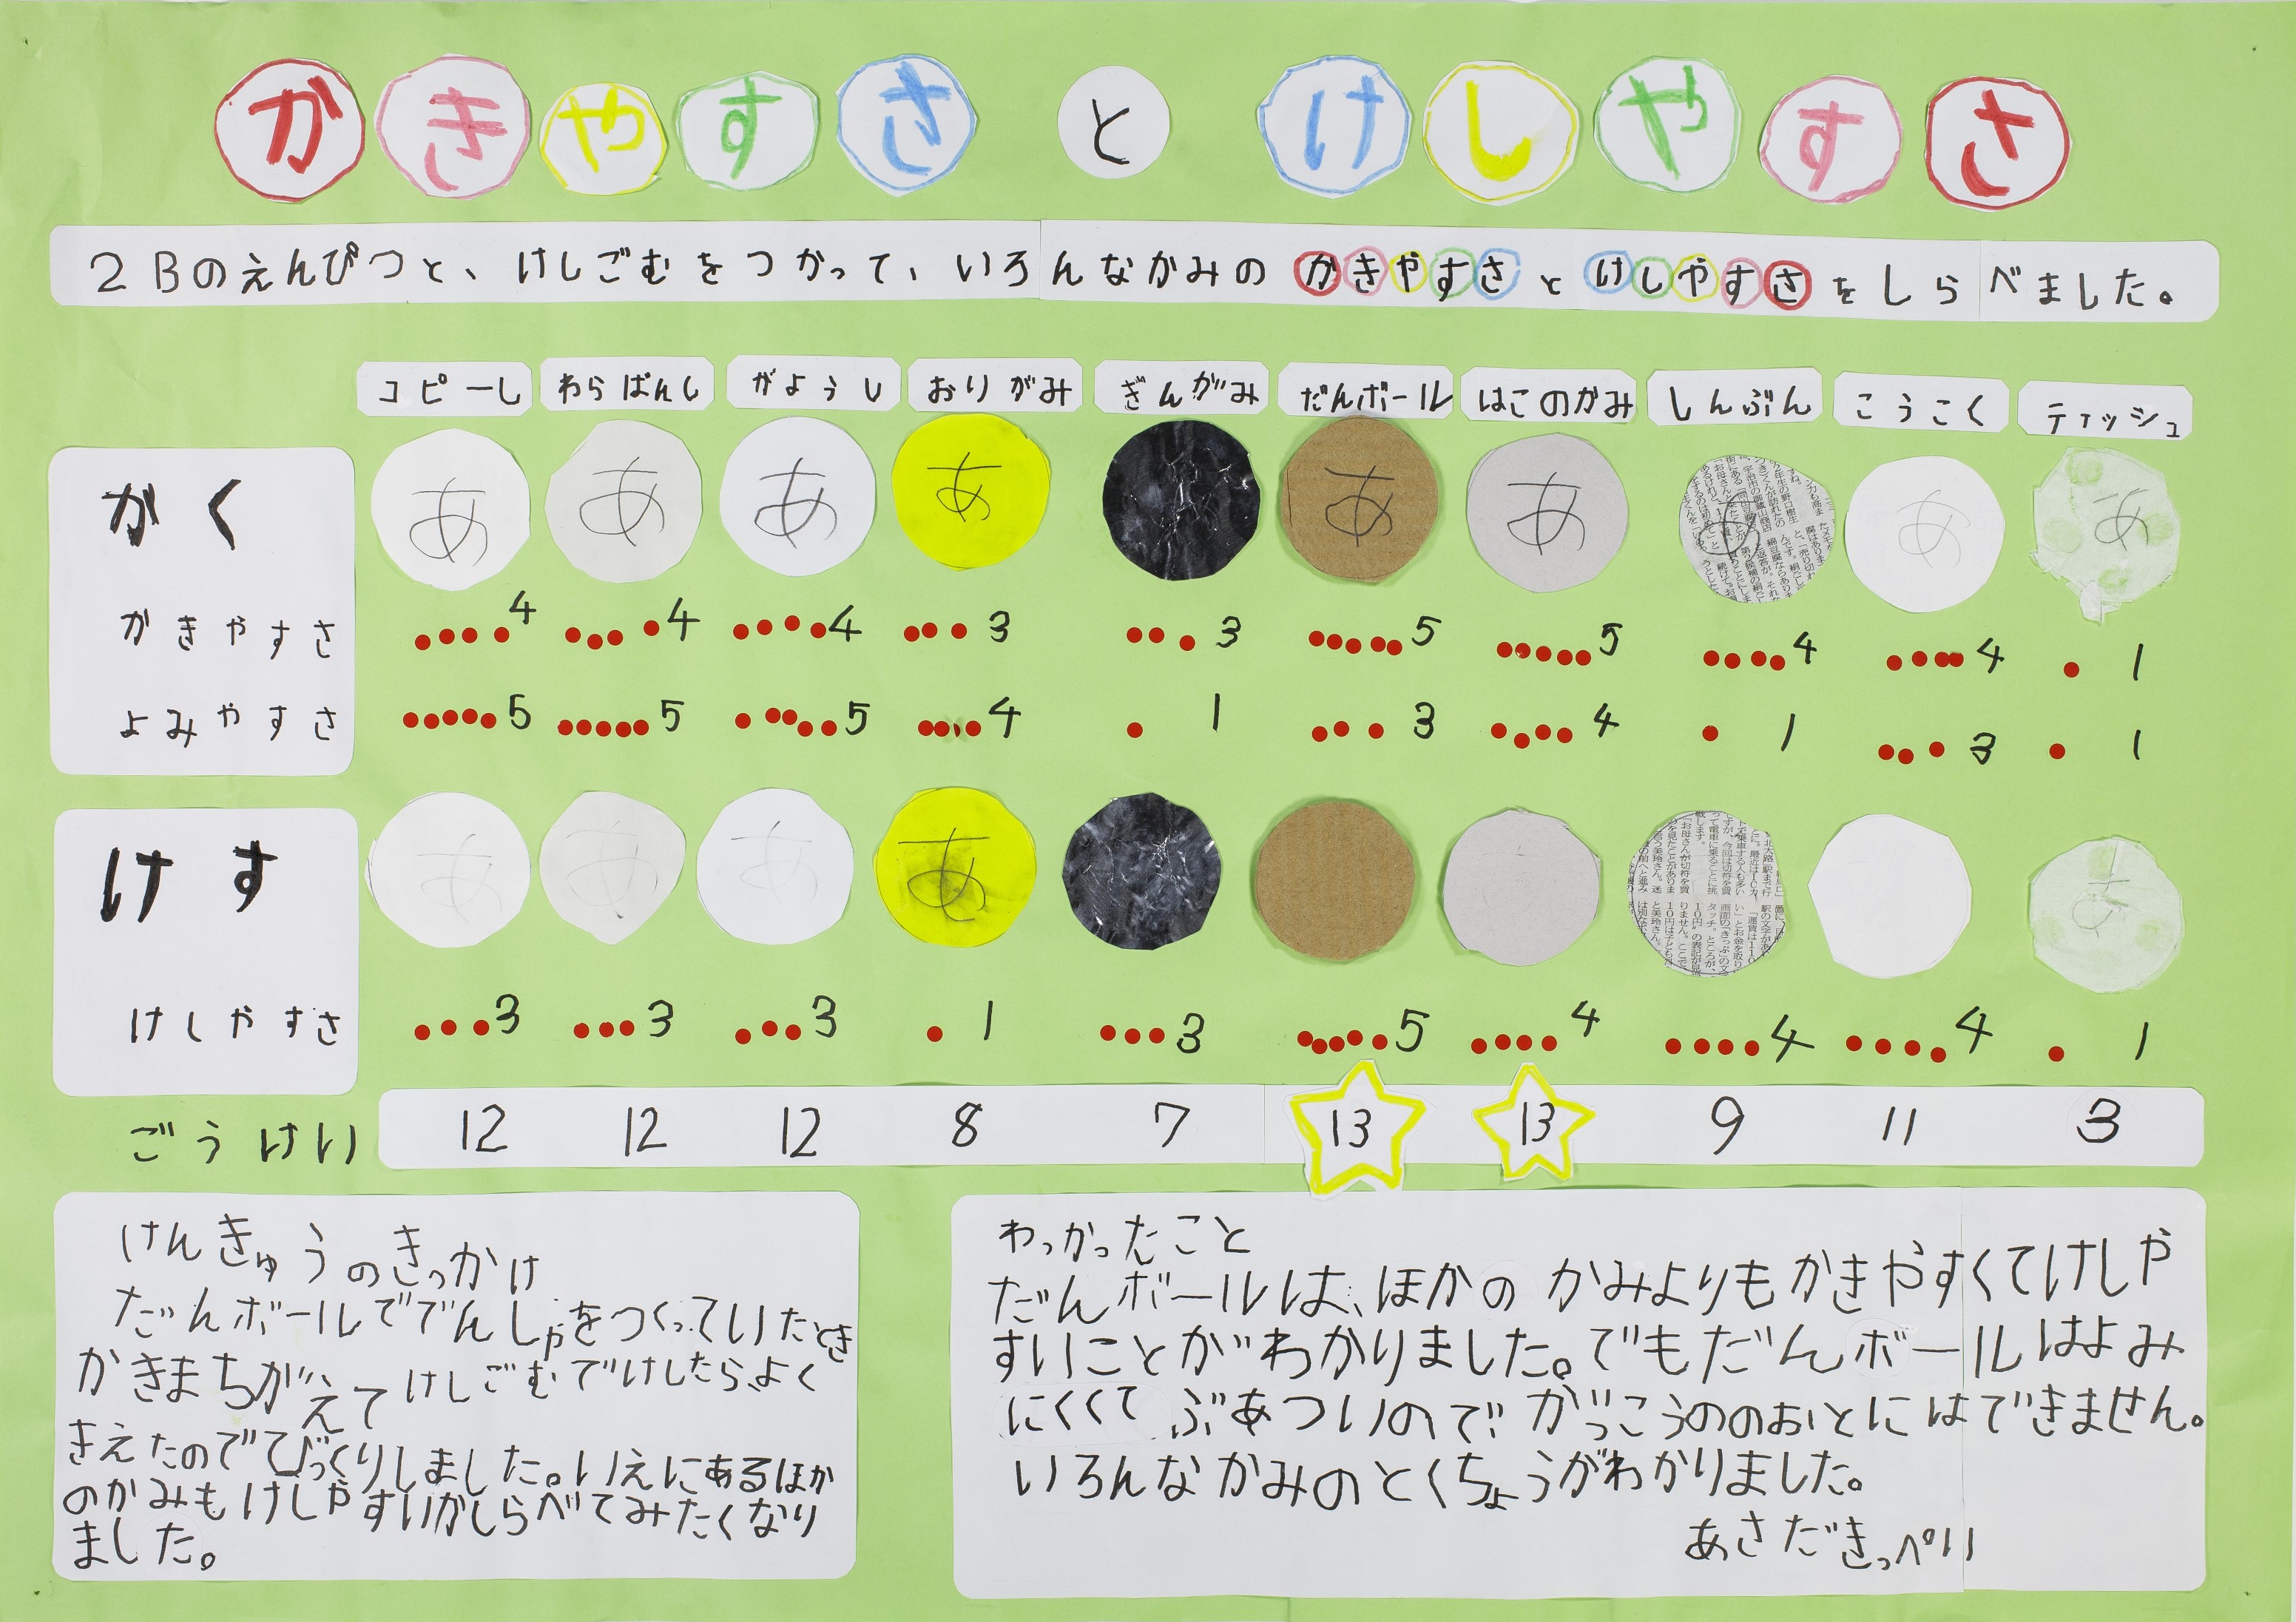 かきやすさ と けしやすさ
2Bのえんぴつと、けしごむをつかって、いろんなかみの かきやすさ と けしやすさ をしらべました。
コピーし わらばんし がようし おりがみ ぎんがみ だんボール はこのかみ しんぶん こうこく ティッシュ
かく
あ あ あ あ あ あ あ あ あ
かきやすさ 4 4 4 3 3 5 5 4 4 1
よみやすさ 5 5 5 4 1 3 4 1 3 1
けす
あ あ あ あ
けしやすさ 3 3 3 1 3 5 4 4 4 1
ごうけい 12 12 12 8 7 13 13 9 11 3
けんきゅうのきっかけ
だんボールででんしゃをつくっていたとき
かきまちがえてけしごむでけしたら、よく
きえたのでてびっくりしました。いえにあるほか
のかみもけしやすいかしらべてみたくなり
ました。
わっかったこと
だんボールは、ほかのかみよりもかきやすくてけしや
すいことがわかりました。でもだんボールはよみ
にくくてぶあついので、がっこうののおとにはできません。
いろんなかみのとくちょうがわかりました。
あさだきっぺい